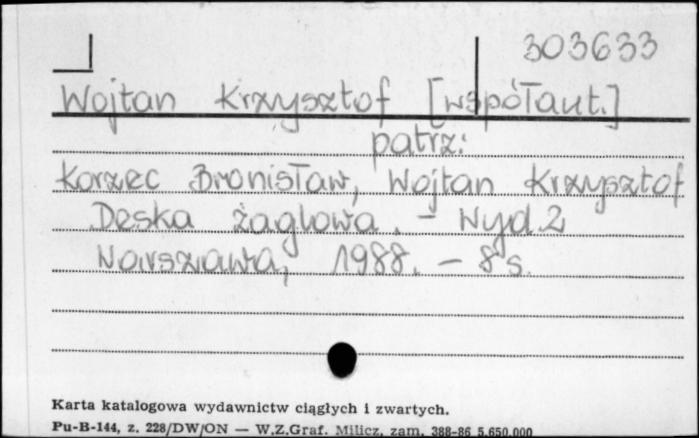 303633
Wojtan Krzysztof [współaut.]
patrz:
Korzec Bronisław, Wojtan Krzysztof
Deska żaglowa. - Wyd.2
Warszawa, 1988. - 8°s.
Karta katalogowa wydawnictw ciągłych i zwartych.
Pu-B-144, z. 228/DW/ON — W.Z.Graf. Milicz, zam. 388-86 5.650.000